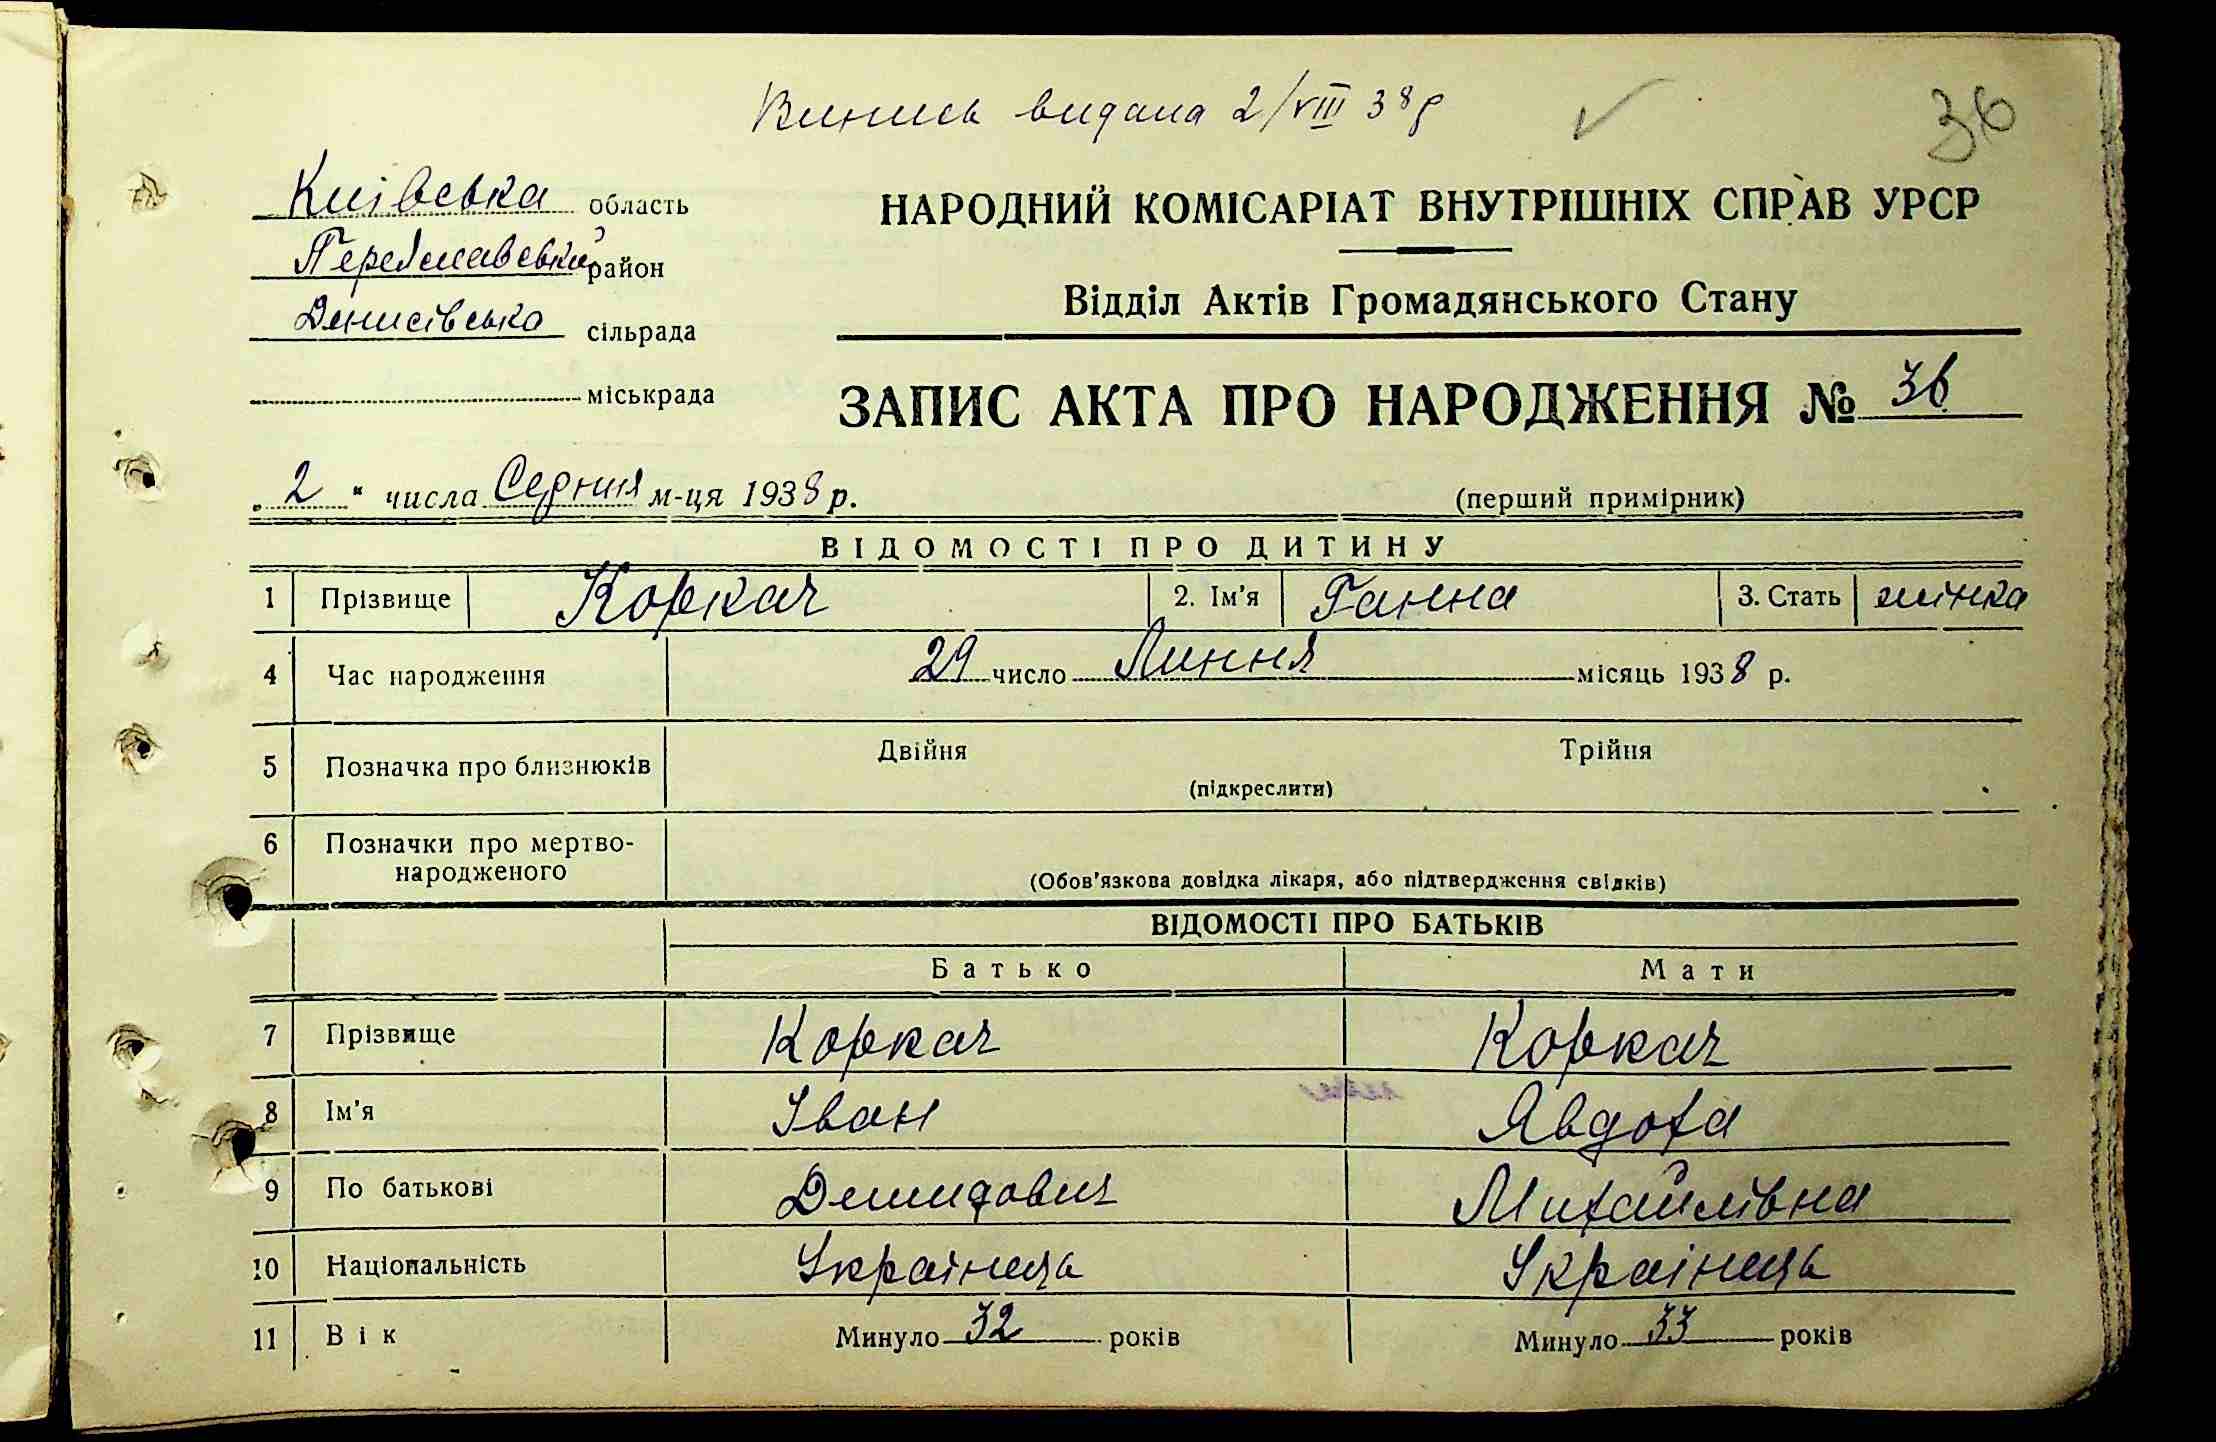 Випись видана 2/VIII 38 р
36
Київська область
Переяславський район
Денисівська сільрада
міськрада
НАРОДНИЙ КОМІСАРІАТ ВНУТРІШНІХ СПРАВ УРСР
Відділ Актів Громадянського Стану
ЗАПИС АКТА ПРО НАРОДЖЕННЯ № 36
„ 2 " числа Серпня м-ця 1938 р.
(перший примірник)
ВІДОМОСТІ ПРО ДИТИНУ
1 Прізвище Коркач 2. Ім'я Ганна 3. Стать жінка
4 Час народження 29 число Липня місяць 1938 р.
5 Позначка про близнюків Двійня Трійня
(підкреслити)
6 Позначки про мертво-
народженого
(Обов'язкова довідка лікаря, або підтвердження свідків)
ВІДОМОСТІ ПРО БАТЬКІВ
Батько Мати
7 Прізвище Коркач Коркач
8 Ім'я Іван Явдоха
9 По батькові Демидович Михайлівна
10 Національність Українець Українець
11 Вік Минуло 32 років Минуло 33 років